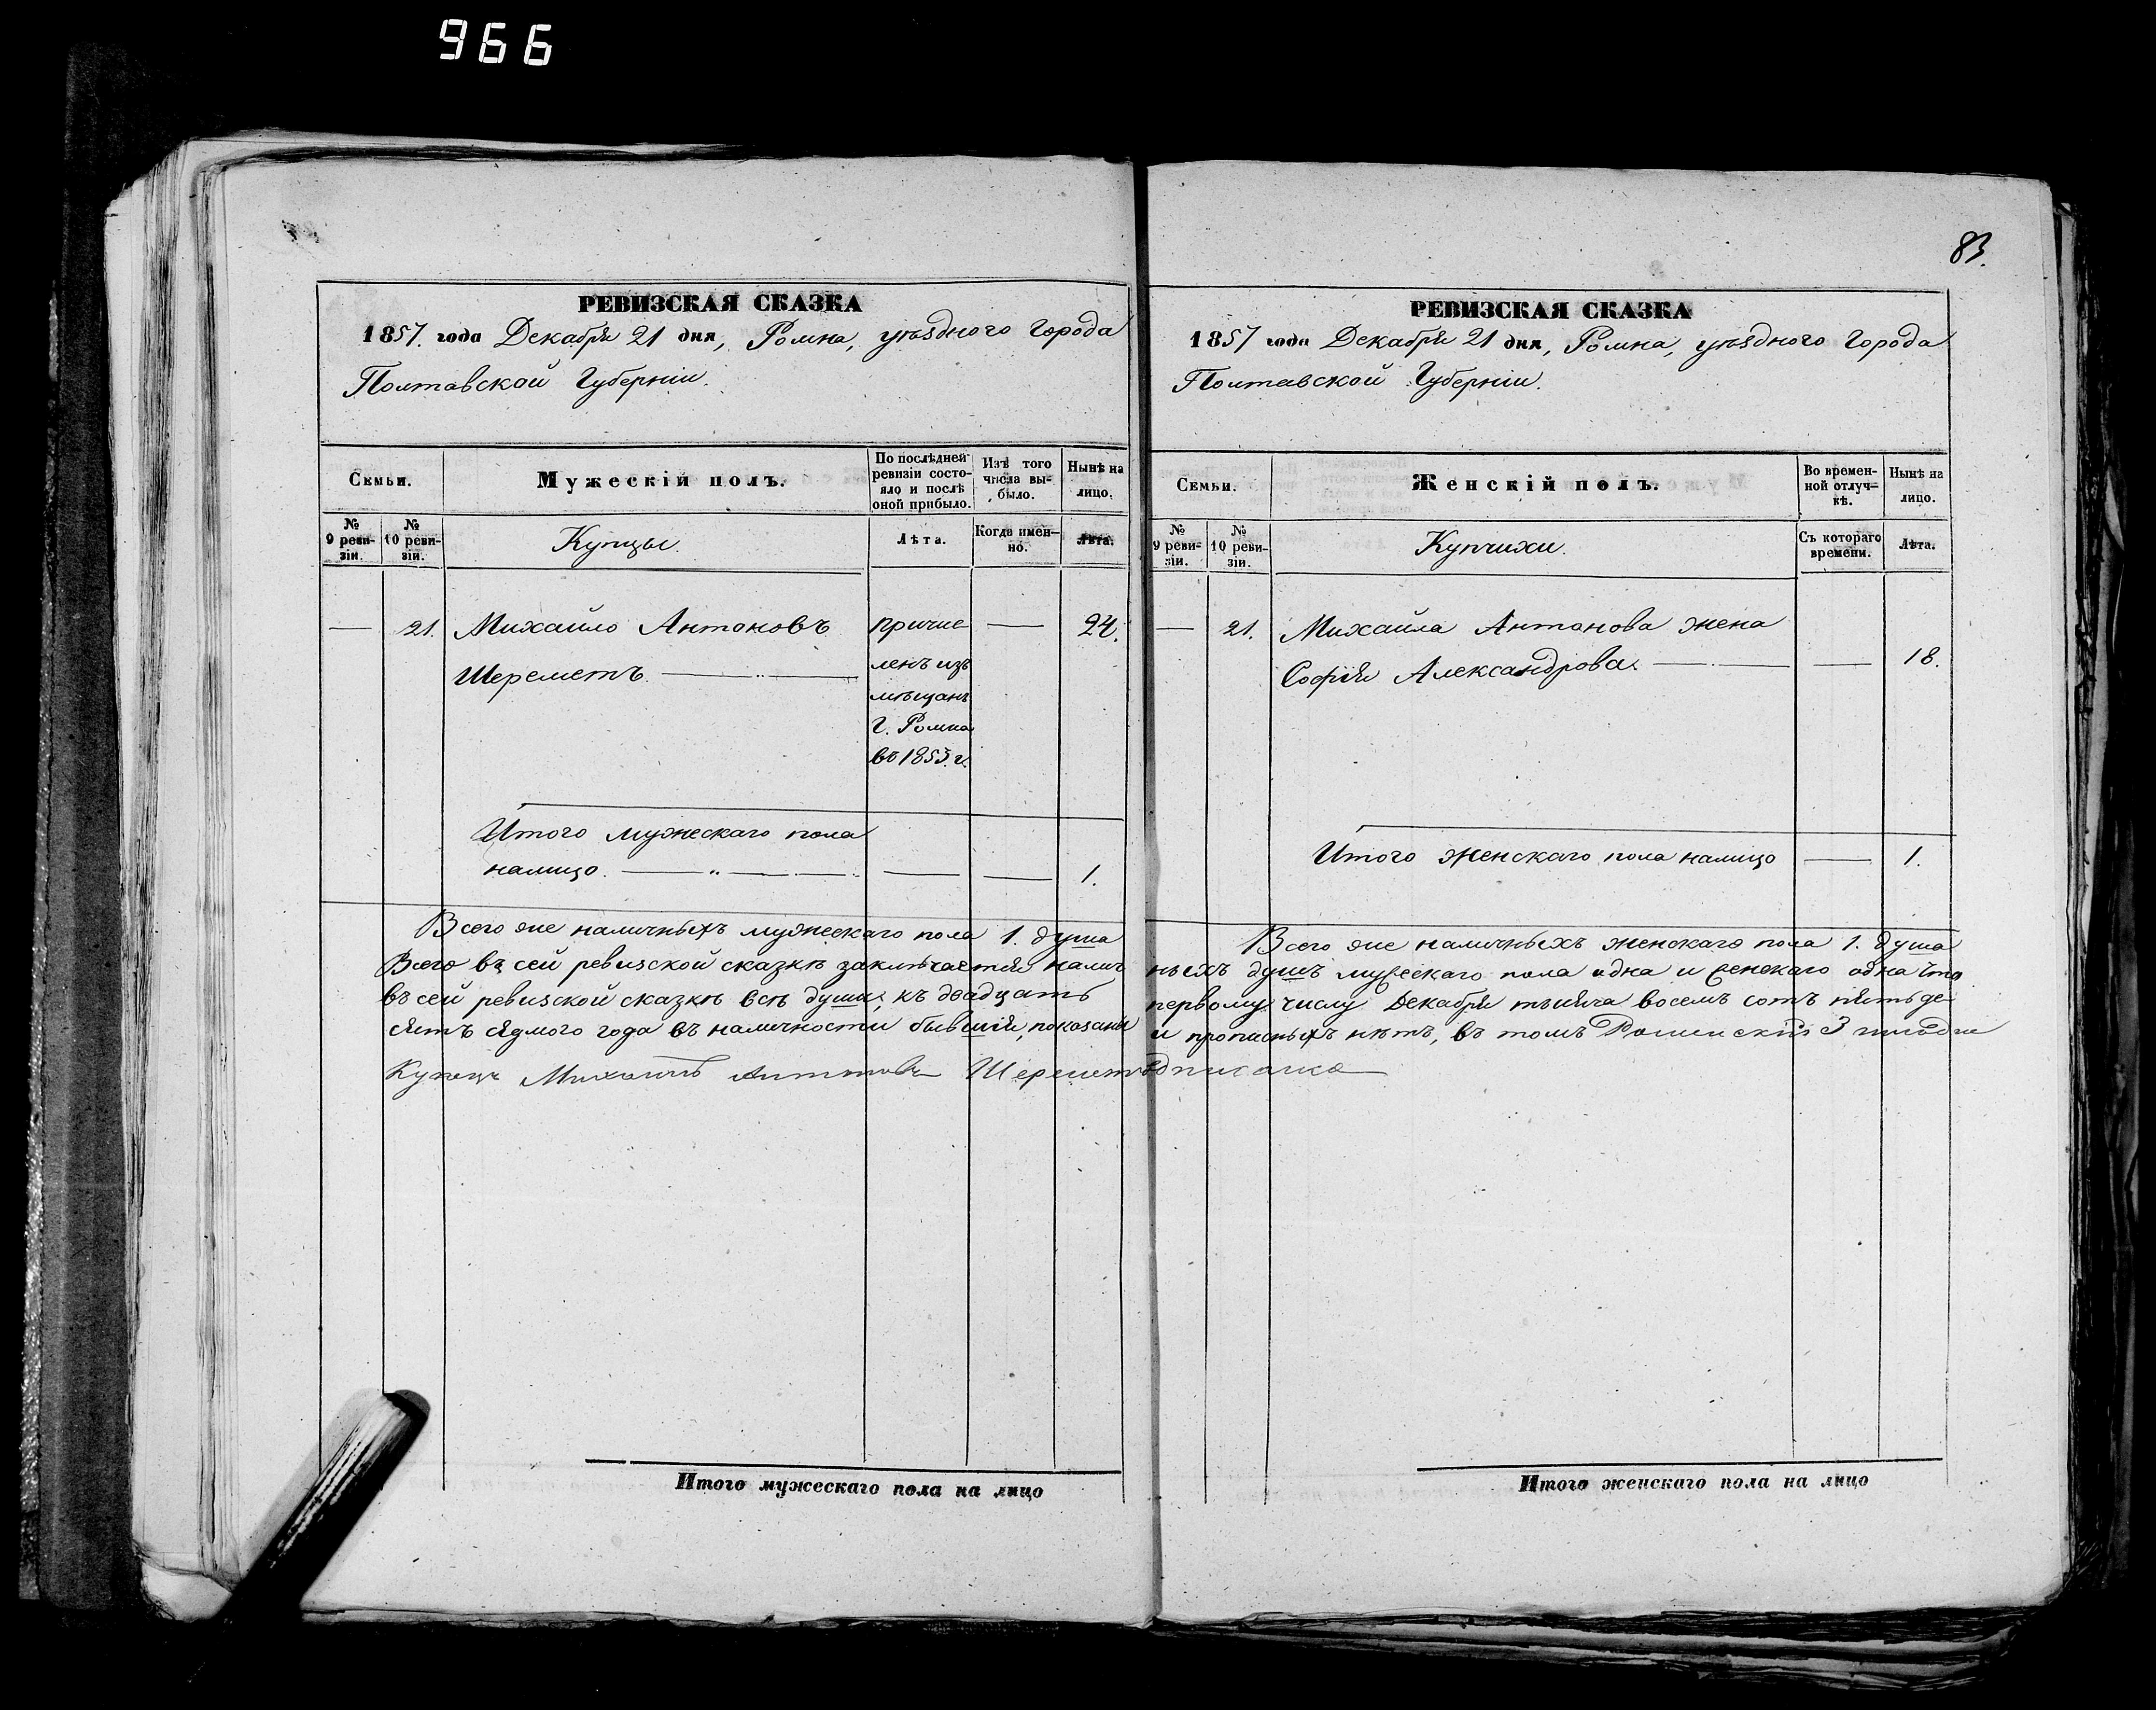 966
83.
РЕВИЗСКАЯ СКАЗКА
1857. года Декабря 21 дня, Ромна, уѣзднаго города
Полтавской Губерніи.
Семьи.
Мужескій полъ.
По послѣдней ревизіи состояло и послѣ оной прибыло.
Изъ того числа выбыло.
Нынѣ на лицо.
№ 9 ревизіи.
№ 10 ревизіи.
Купцы.
Лѣта.
Когда именно.
Лѣта.
— 21. Михайло Антоновъ причис — 24.
Шереметъ. ленъ изъ
мѣщанъ
г. Ромна
въ 1853. г.
Итого мужескаго пола
налицо. — — 1.
Всего же наличныхъ мужескаго пола 1. душа
Всего въ сей ревизской сказкѣ заключается налич
въ сей ревизской сказкѣ всѣ души, къ двадцать
сятъ седмого года въ наличности бывшія, показаны
Купецъ Михаилъ Антоновъ Шеремет
Итого мужескаго пола на лицо
РЕВИЗСКАЯ СКАЗКА
1857 года Декабря 21 дня, Ромна, уѣзднаго города
Полтавской Губерніи.
Семьи.
Женскій полъ.
Во временной отлучкѣ.
Нынѣ на лицо.
№ 9 ревизіи.
№ 10 ревизіи.
Купчихи.
Съ котораго времени.
Лѣта.
— 21. Михайла Антонова жена
Софія Александрова. — — 18.
Итого женскаго пола налицо — 1.
Всего же наличныхъ женскаго пола 1. душа
ныхъ душъ мужескаго пола одна и женскаго одна что
первому числу Декабря тысяча восемъ сотъ пятьде
и прописныхъ нѣтъ, въ томъ Роменскій 3 гильдіи
одписался
Итого женскаго пола на лицо